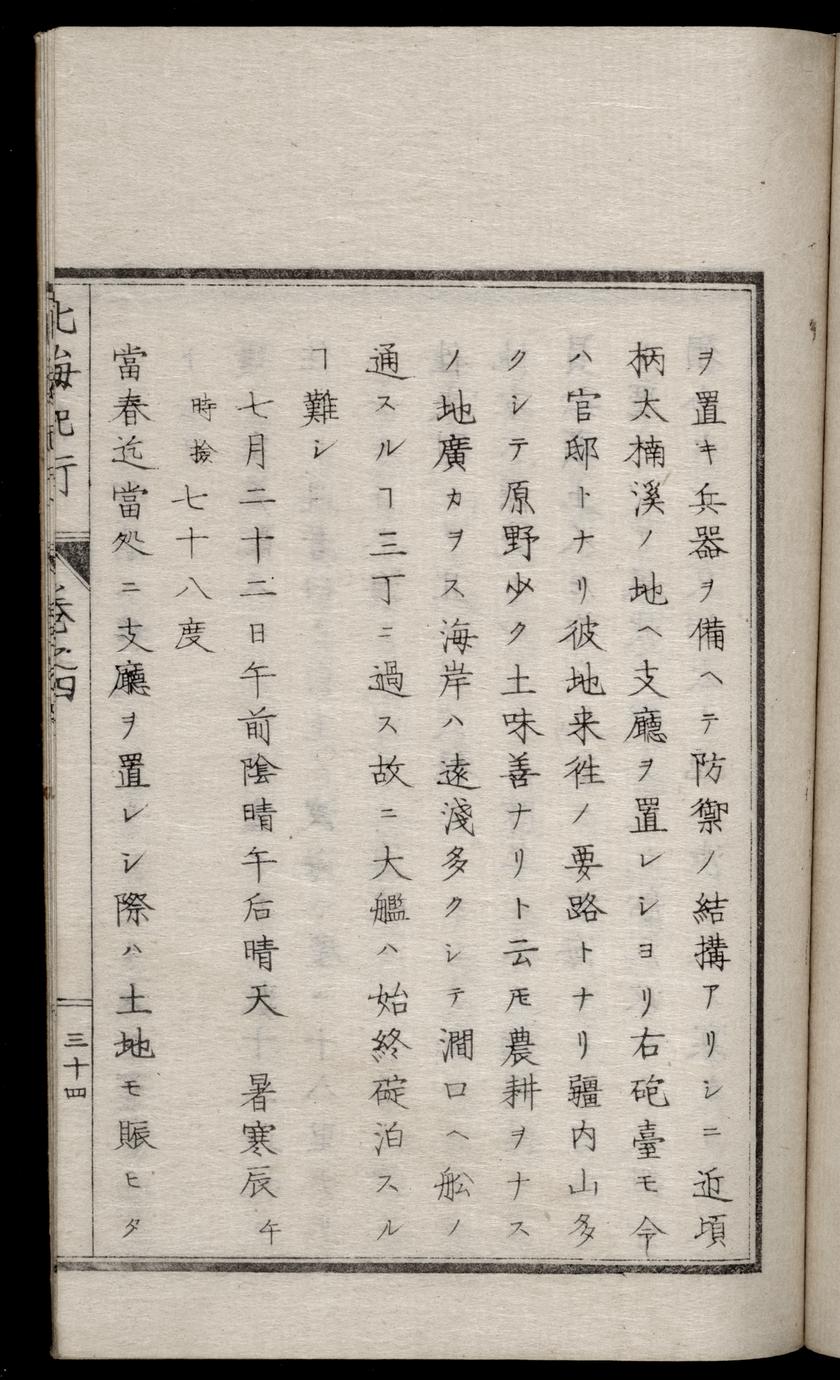 ヲ置キ兵器ヲ備ヘテ防禦ノ結搆アリシニ近頃
柄太楠溪ノ地ヘ支廳ヲ置レシヨリ右砲臺モ今
ハ官邸トナリ彼地来徃ノ要路トナリ疆内山多
クシテ原野少ク土味善ナリト云𪜈農耕ヲナス
ノ地廣カヲス海岸ハ遠淺多クシテ澗口ヘ舩ノ
通スルヿ三丁ニ過ス故ニ大艦ハ始終碇泊スル
ヿ難シ
七月二十二日午前陰晴午后晴天 暑寒辰午
時撿七十八度
當春迄當処ニ支廳ヲ置レシ際ハ土地モ賑ヒタ
北海紀行 巻之四 三十四